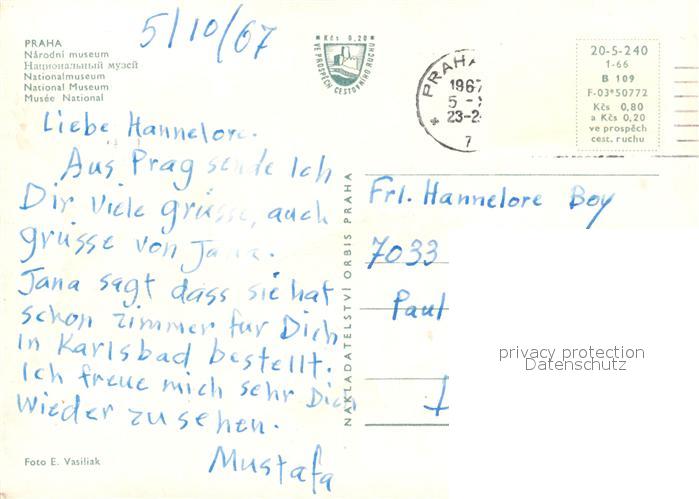 5/10/67
PRAHA
Národní museum
Национальный музей
Nationalmuseum
National Museum
Musée National
* Kčs 0,20 *
VE PROSPĚCH CESTOVNÍHO RUCHU
PRAHA
1967
5
23-2
7
20-5-240
1-66
B 109
F-03*50772
Kčs 0,80
a Kčs 0,20
ve prospěch
cest. ruchu
Liebe Hannelore.
Aus Prag sende Ich
Dir viele grüsse, auch
grüsse von Jana.
Jana sagt dass sie hat
schon zimmer für Dich
in Karlsbad bestellt.
Ich freue mich sehr Dich
wieder zu sehen.
Mustafa
Foto E. Vasiliak
NAKLADATELSTVÍ ORBIS PRAHA
Frl. Hannelore Boy
7033
Paul
privacy protection
Datenschutz